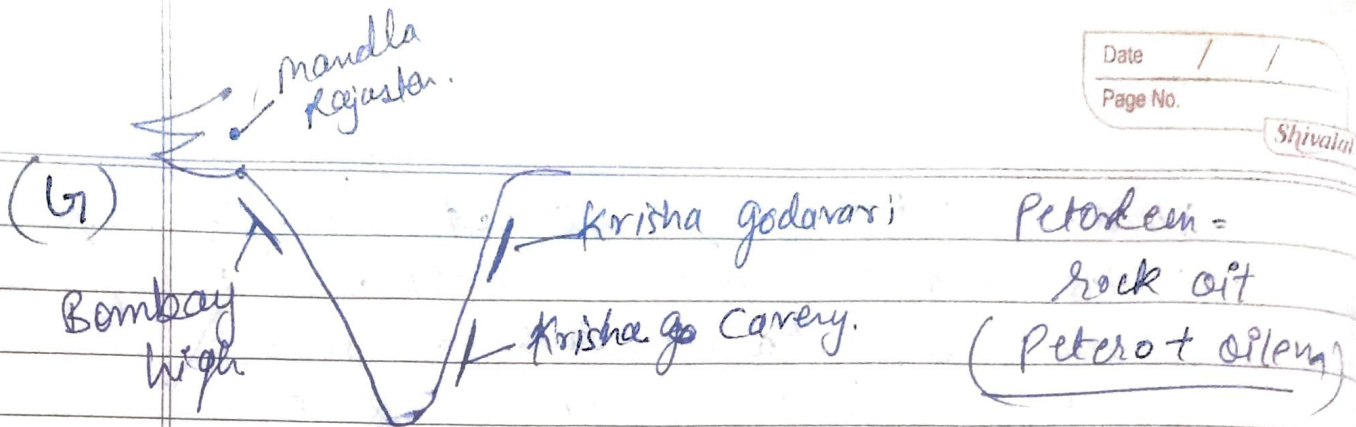 Mandla
Rajastan.
Date / /
Page No.
Shivalal
(G)
Bombay
high
Krisha godavari
Krisha go Cavery.
Petorleum =
rock oil
(Petero + oileum)